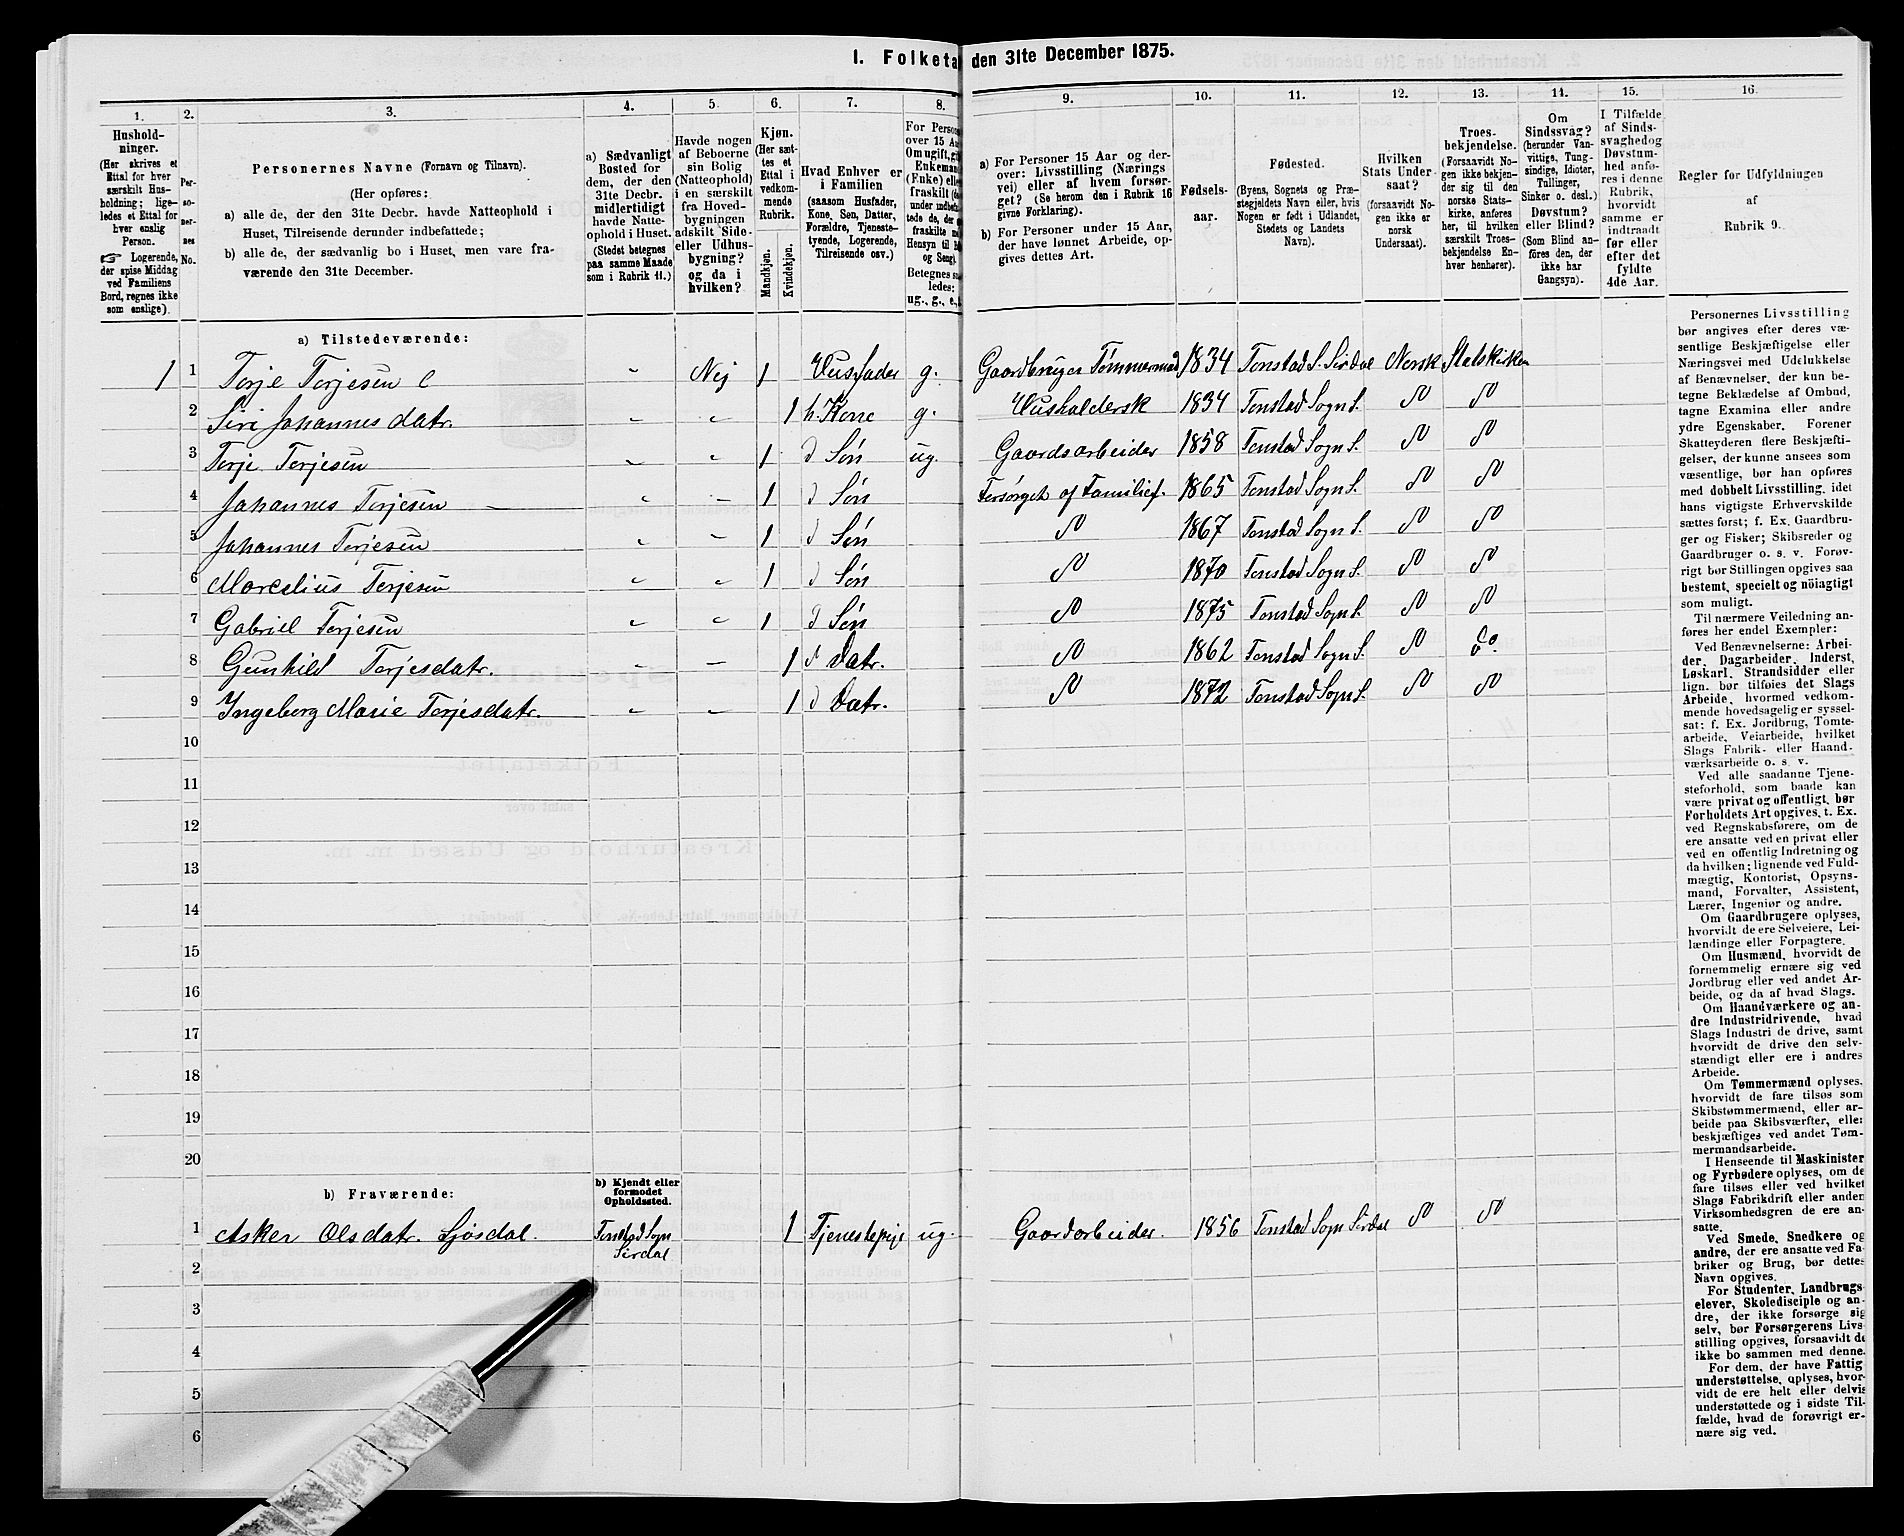 I. Folketa den 31te December 1875.
1.
Hushold-
ninger.
(Her skrives et
Ettal for hver
særskilt Hus-
holdning; lige-
ledes et Ettal for
hver enslig
Person.
☞ Logerende,
der spise Middag
ved Familiens
Bord, regnes ikke
som enslige).
2.
Per-
so-
ner-
nes
No.
3.
Personernes Navne (Fornavn og Tilnavn).
(Her opføres:
a) alle de, der den 31te Decbr. havde Natteophold i
Huset, Tilreisende derunder indbefattede;
b) alle de, der sædvanlig bo i Huset, men vare fra-
værende den 31te December.
4.
a) Sædvanligt
Bosted for
dem, der den
31te Decbr.
midlertidigt
havde Natte-
ophold i Huset.
(Stedet betegnes
paa samme Maade
som i Rubrik 11.)
5.
Havde nogen
af Beboerne
sin Bolig
(Natteophold)
i en særskilt
fra Hoved-
bygningen
adskilt Side-
eller Udhus-
bygning?
og da i
hvilken?
6.
Kjøn.
(Her sæt-
tes et
Ettal i
vedkom-
mende
Rubrik.
Mandkjøn.
Kvindekjøn.
7.
Hvad Enhver er
i Familien
(saasom Husfader,
Kone, Søn, Datter,
Forældre, Tjeneste-
tyende, Logerende,
Tilreisende osv.)
8.
For Person
over 15 Aa
Om ugift, gi
Enkeman
(Enke) elle
fraskilt (de
under indbef
tede de, der
fraskilte m
Hensyn til B
og Seng).
Betegnes s
ledes:
ug., g., e.,
9.
a) For Personer 15 Aar og der-
over: Livsstilling (Nærings
vei) eller af hvem forsør-
get? (Se herom den i Rubrik 16
givne Forklaring).
b) For Personer under 15 Aar,
der have lønnet Arbeide, op-
gives dettes Art.
10.
Fødsels-
aar.
11.
Fødested.
(Byens, Sognets og Præ-
stegjeldets Navn eller, hvis
Nogen er født i Udlandet,
Stedets og Landets
Navn).
12.
Hvilken
Stats Under-
saat?
(forsaavidt No-
gen ikke er
norsk
Undersaat).
13.
Troes-
bekjendelse.
(Forsaavidt No-
gen ikke bekjen-
der sig til den
norske Stats-
kirke, anføres
her, til hvilken
særskilt Troes-
bekjendelse En-
hver henhører).
14.
Om
Sindssvag?
(herunder Van-
vittige, Tung-
sindige, Idioter,
Tullinger,
Sinker o. desl.)
Døvstum?
eller Blind?
(Som Blind an-
føres den, der
ikke har
Gangsyn).
15.
I Tilfælde
af Sinds-
svaghed og
Døvstum-
hed anfø-
res i denne
Rubrik,
hvorvidt
samme er
indtraadt
før eller
efter det
fyldte
4de Aar.
16.
Regler for Udfyldningen
af
Rubrik 9.
a) Tilstedeværende:
1 1 Terje Terjesen Nej 1 Husfader g. Gaardbruger Tømmermad 1834 Tonstad S. Sirdal Norsk Statskirken
2 Siri Johannes datr. 1 h. Kone g. Husholdersk 1834 Tonstad Sogn S. do do
3 Terje Terjesen 1 d Søn ug. Gaardsarbeider 1858 Tonstad Sogn S. do do
4 Johannes Terjesen 1 d Søn Forsørget af Familief. 1865 Tonstad Sogn S. do do
5 Johannes Terjesen 1 d Søn do 1867 Tonstad Sogn S. do do
6 Marcelius Terjesen 1 d Søn do 1870 Tonstad Sogn S. do do
7 Gabriel Terjesen 1 d Søn do 1875 Tonstad Sogn S. do do
8 Gunhild Terjesdatr. 1 d Datr. do 1862 Tonstad Sogn S. do do.
9 Ingeborg Marie Terjesdatr. 1 d Datr. do 1872 Tonstad Sogn S. do do
10
11
12
13
14
15
16
17
18
19
20
b) Fraværende:
b) Kjendt eller
formodet
Opholdssted.
1 Asker Olsdatr. Sjøsdal. Tonstad Sogn Sirdal 1 Tjenestepige ug. Gaardarbeider. 1856 Tonstad Sogn Sirdal do do
2
3
4
5
6
Personernes Livsstilling
bør angives efter deres væ-
sentlige Beskjæftigelse eller
Næringsvei med Udelukkelse
af Benævnelser, der kun be-
tegne Beklædelse af Ombud,
tagne Examina eller andre
ydre Egenskaber. Forener
Skatteyderen flere Beskjæfti-
gelser, der kunne ansees som
væsentlige, bør han opføres
med dobbelt Livsstilling, idet
hans vigtigste Erhvervskilde
sættes først; f. Ex. Gaardbru-
ger og Fisker; Skibsreder og
Gaardbruger o. s. v. Forøv-
rigt bør Stillingen opgives saa
bestemt, specielt og nöiagtigt
som muligt.
Til nærmere Veiledning an-
føres her endel Exempler:
Ved Benævnelserne: Arbei-
der, Dagarbeider, Inderst,
Løskarl, Strandsidder eller
lign. bør tilføies det Slags
Arbeide, hvormed vedkom-
mende hovedsagelig er syssel-
sat; f. Ex. Jordbrug, Tomte-
arbeide, Veiarbeide, hvilket
Slags Fabrik- eller Haand-
værksarbeide o. s. v.
Ved alle saadanne Tjene-
steforhold, som baade kan
være privat og offentligt, bør
Forholdets Art opgives, t. Ex.
ved Regnskabsførere, om de
ere ansatte ved en privat eller
ved en offentlig Indretning og
da hvilken; lignende ved Fuld-
mægtig, Kontorist, Opsyns-
mand, Forvalter, Assistent,
Lærer, Ingeniør og andre.
Om Gaardbrugere oplyses,
hvorvidt de ere Selveiere, Lei-
lændinge eller Forpagtere.
Om Husmænd, hvorvidt de
fornemmelig ernære sig ved
Jordbrug eller ved andet Ar-
beide, og da af hvad Slags.
Om Haandværkere og an-
dre Industridrivende, hvad
Slags Industri de drive, samt
hvorvidt de drive den selv-
stændigt eller ere i andres
Arbeide.
Om Tømmermænd oplyses,
hvorvidt de fare tilsøs som
Skibstømmermænd, eller ar-
beide paa Skibsværfter, eller
beskjæftiges ved andet Tøm-
mermandsarbeide.
I Henseende til Maskinister
og Fyrbødere oplyses, om de
fare tilsøs eller ved hvilket
Slags Fabrikdrift eller anden
Virksomhedsgren de ere an-
satte.
Ved Smede, Snedkere og
andre, der ere ansatte ved Fa-
briker og Brug, bør dettes
Navn opgives.
For Studenter, Landbrugs-
elever, Skoledisciple og an-
dre, der ikke forsørge sig
selv, bør Forsørgerens Livs-
stilling opgives, forsaavidt de
ikke bo sammen med denne.
For dem, der have Fattig-
understøttelse, oplyses, hvor-
vidt de ere helt eller delvis
understøttede og i sidste Til-
fælde, hvad de forøvrigt er-
nære sig ved.